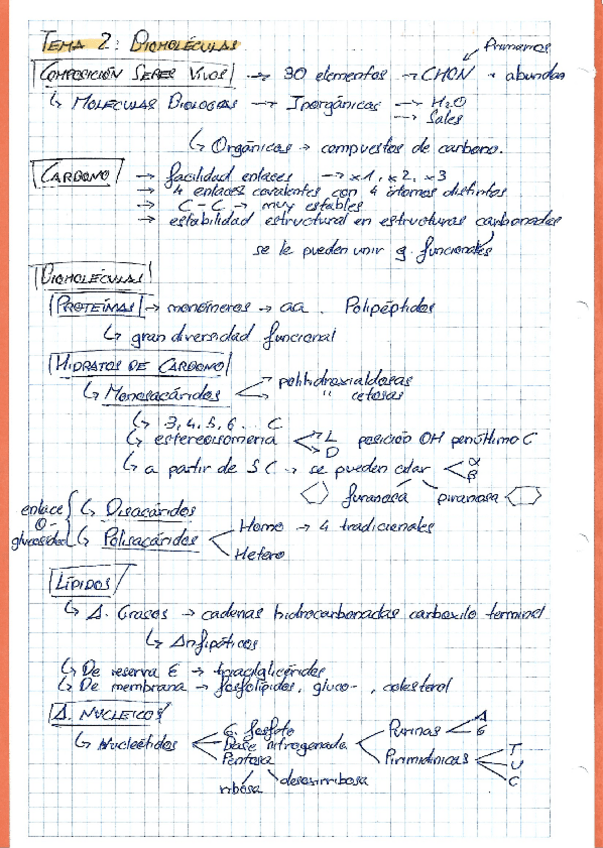 TEMA 2: BIOMOLÉCULAS
Primarios
COMPOSICIÓN SERES VIVOS → 30 elementos → CHON + abundan
↳ MOLÉCULAS BIOLOGÍAS → Inorgánicas → H₂O
→ Sales
↳ Orgánicas → compuestos de carbono.
CARBONO → facilidad enlaces → x1, x2, x3
→ 4 enlaces covalentes con 4 átomos distintos
→ C - C → muy estables
→ estabilidad estructural en estructuras carbonadas
se le pueden unir g. funcionales
BIOMOLÉCULAS
PROTEÍNAS → monómeros → aa. Polipéptidos
↳ gran diversidad funcional
HIDRATOS DE CARBONO
↳ Monosacáridos polihidroxialdosas
" cetosas
↳ 3, 4, 5, 6... C
↳ estereoisomería L D posición OH penúltimo C
↳ a partir de 5C → se pueden ciclar α β
furanosa piranosa
enlace O-glucosídico
↳ Disacáridos
↳ Polisacáridos Homo → 4 tradicionales
Hetero
LÍPIDOS
↳ A. Grasos → cadenas hidrocarbonadas carboxilo terminal
↳ Anfipáticos
↳ De reserva E → triacilglicéridos
↳ De membrana → fosfolípidos, gluco-, colesterol
A. NUCLEICOS
↳ Nucleótidos G. fosfato
Base nitrogenada Purinas A G
Pirimidínicas T U C
Pentosa
ribosa desoxirribosa